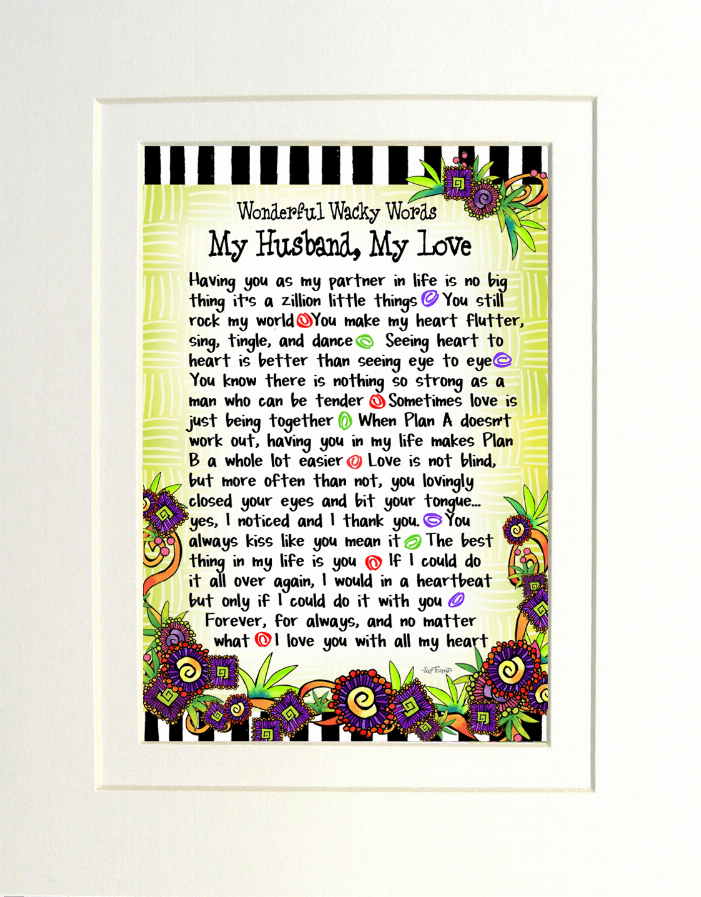 Wonderful Wacky Words
My Husband, My Love
Having you as my partner in life is no big
thing it's a zillion little things You still
rock my world You make my heart flutter,
sing, tingle, and dance Seeing heart to
heart is better than seeing eye to eye
You know there is nothing so strong as a
man who can be tender Sometimes love is
just being together When Plan A doesn't
work out, having you in my life makes Plan
B a whole lot easier Love is not blind,
but more often than not, you lovingly
closed your eyes and bit your tongue...
yes, I noticed and I thank you. You
always kiss like you mean it The best
thing in my life is you If I could do
it all over again, I would in a heartbeat
but only if I could do it with you
Forever, for always, and no matter
what I love you with all my heart